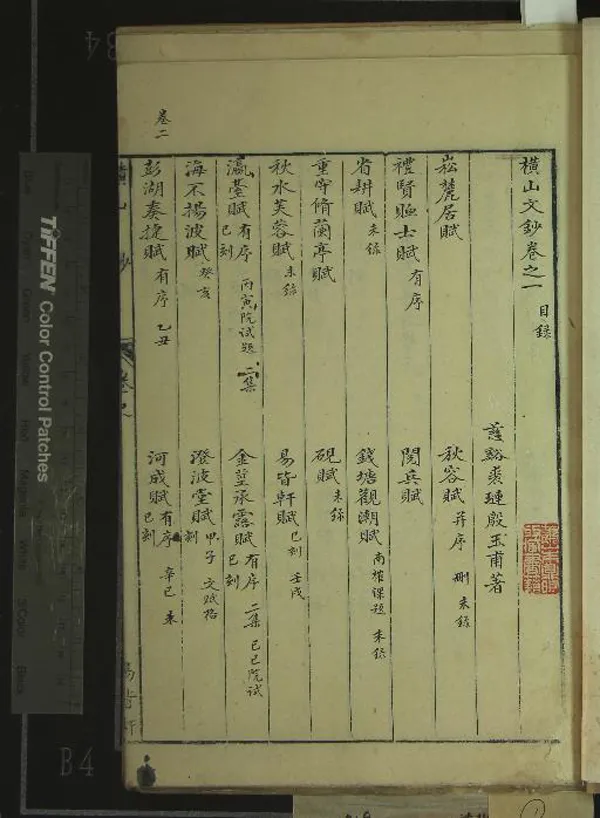 橫山文鈔卷之一 目錄
慈谿裘璉殷玉甫著
崧麓居賦
秋容賦 并序 刪 未錄
禮賢驗士賦 有序
閱兵賦
省耕賦 未錄
錢塘觀潮賦 南榷課題 未錄
重脩蘭亭賦
硯賦 未錄
秋水芙蓉賦 未錄
易皆軒賦 已刻 壬戌
瀛臺賦 有序 已刻 丙寅院試題 二集
金莖承露賦 有序 已刻 二集 己巳院試
海不揚波賦 癸亥
澄波堂賦 已刻 甲子
彭湖奏捷賦 有序 乙丑
河成賦 有序 已刻 辛巳
卷二
TIFFEN Color Control Patches
B4
B4